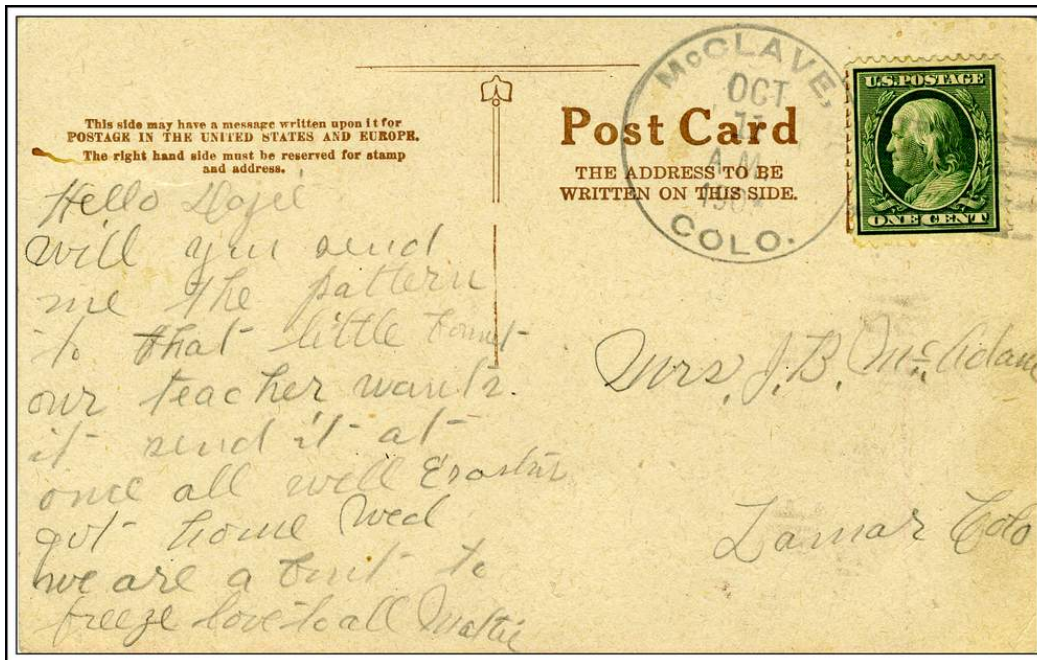 This side may have a message written upon it for
POSTAGE IN THE UNITED STATES AND EUROPE.
The right hand side must be reserved for stamp
and address.
Post Card
THE ADDRESS TO BE
WRITTEN ON THIS SIDE.
McCLAVE,
OCT
A.M.
COLO.
U.S. POSTAGE
ONE CENT
Hello
will you send
me the pattern
to that little
our teacher wants
it send it at
once all well Erastus
got home Wed
we are a to
freeze love to all Mattie
Mrs. J. B. McAdam
Lamar Colo